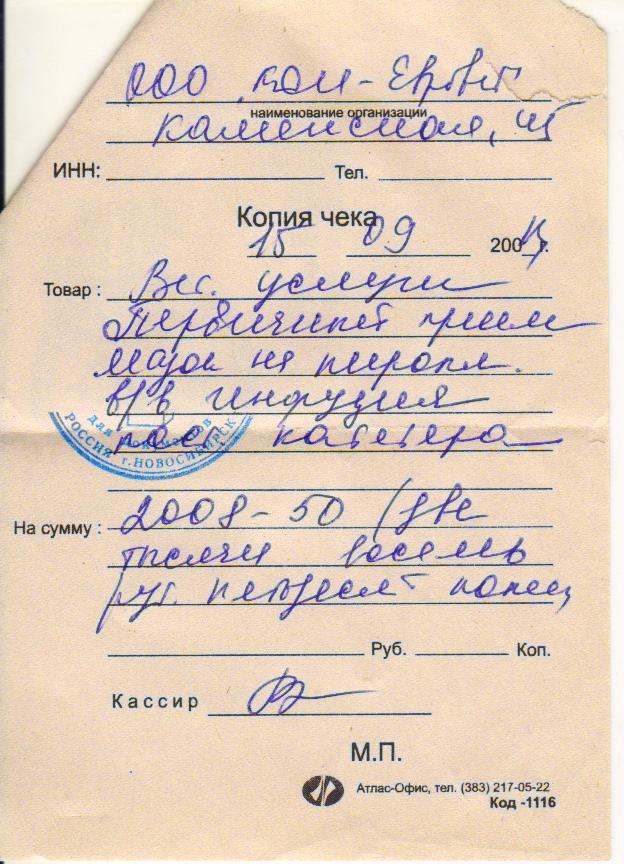 ООО
наименование организации
Каменская,
ИНН: Тел.
Копия чека
15 09 200 г.
Товар : Вет. услуги
Первичный прием
мазок на пиропл.
в/в инфузия
пост. катетера
для документов
РОССИЯ г.НОВОСИБИРСК
На сумму : 2008-50 (две
тысячи восемь
руб. пятдесят копеек
Руб. Коп.
Кассир
М.П.
Атлас-Офис, тел. (383) 217-05-22
Код -1116